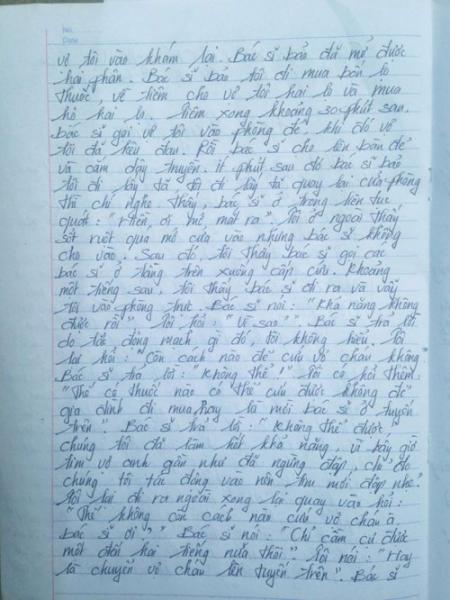 No.
Date
vợ tôi vào khám lại. Bác sĩ bảo đã mở được
hai phân. Bác sĩ bảo tôi đi mua bốn lọ
thuốc, về tiêm cho vợ tôi hai lọ và mua
hộ hai lọ. Tiêm xong khoảng 30 phút sau,
bác sĩ gọi vợ tôi vào phòng đẻ, khi đó vợ
tôi đã kêu đau. Rồi bác sĩ cho lên bàn đẻ
và cắm dây truyền. Ít phút sau đó bác sĩ bảo
tôi đi lấy tã. Tôi đi lấy tã quay lại cửa phòng
thì chỉ nghe thấy, bác sĩ ở trong liên tục
quát: "Hiền, ơi mở mắt ra". Tôi ở ngoài thấy
sốt ruột quá mở cửa vào nhưng bác sĩ không
cho vào. Sau đó, tôi thấy bác sĩ gọi các
bác sĩ ở tầng trên xuống cấp cứu. Khoảng
một tiếng sau, tôi thấy bác sĩ đi ra và vẫy
tôi vào phòng trực. Bác sĩ nói: "Khả năng không
được rồi". Tôi hỏi: "Vì sao?". Bác sĩ trả lời
do tắc động mạch gì đó, tôi không hiểu. Tôi
lại hỏi: "Còn cách nào để cứu vợ cháu không
Bác sĩ trả lời: "Không thể!" Tôi có hỏi thêm:
"Thế có thuốc nào có thể cứu được không để
gia đình đi mua, hay là mời bác sĩ ở tuyến
trên". Bác sĩ trả lời: "Không thể được
chúng tôi đã làm hết khả năng, vì bây giờ
tim vợ anh gần như đã ngừng đập, chỉ do
chúng tôi tác động vào nên tim mới đập nhẹ"
Tôi lại đi ra ngoài xong lại quay vào hỏi:
"Thế không còn cách nào cứu vợ cháu à
bác sĩ ơi?" Bác sĩ nói: "Chỉ cầm cự được
một đến hai tiếng nữa thôi." Tôi nói: "Hay
là chuyển vợ cháu lên tuyến trên". Bác sĩ